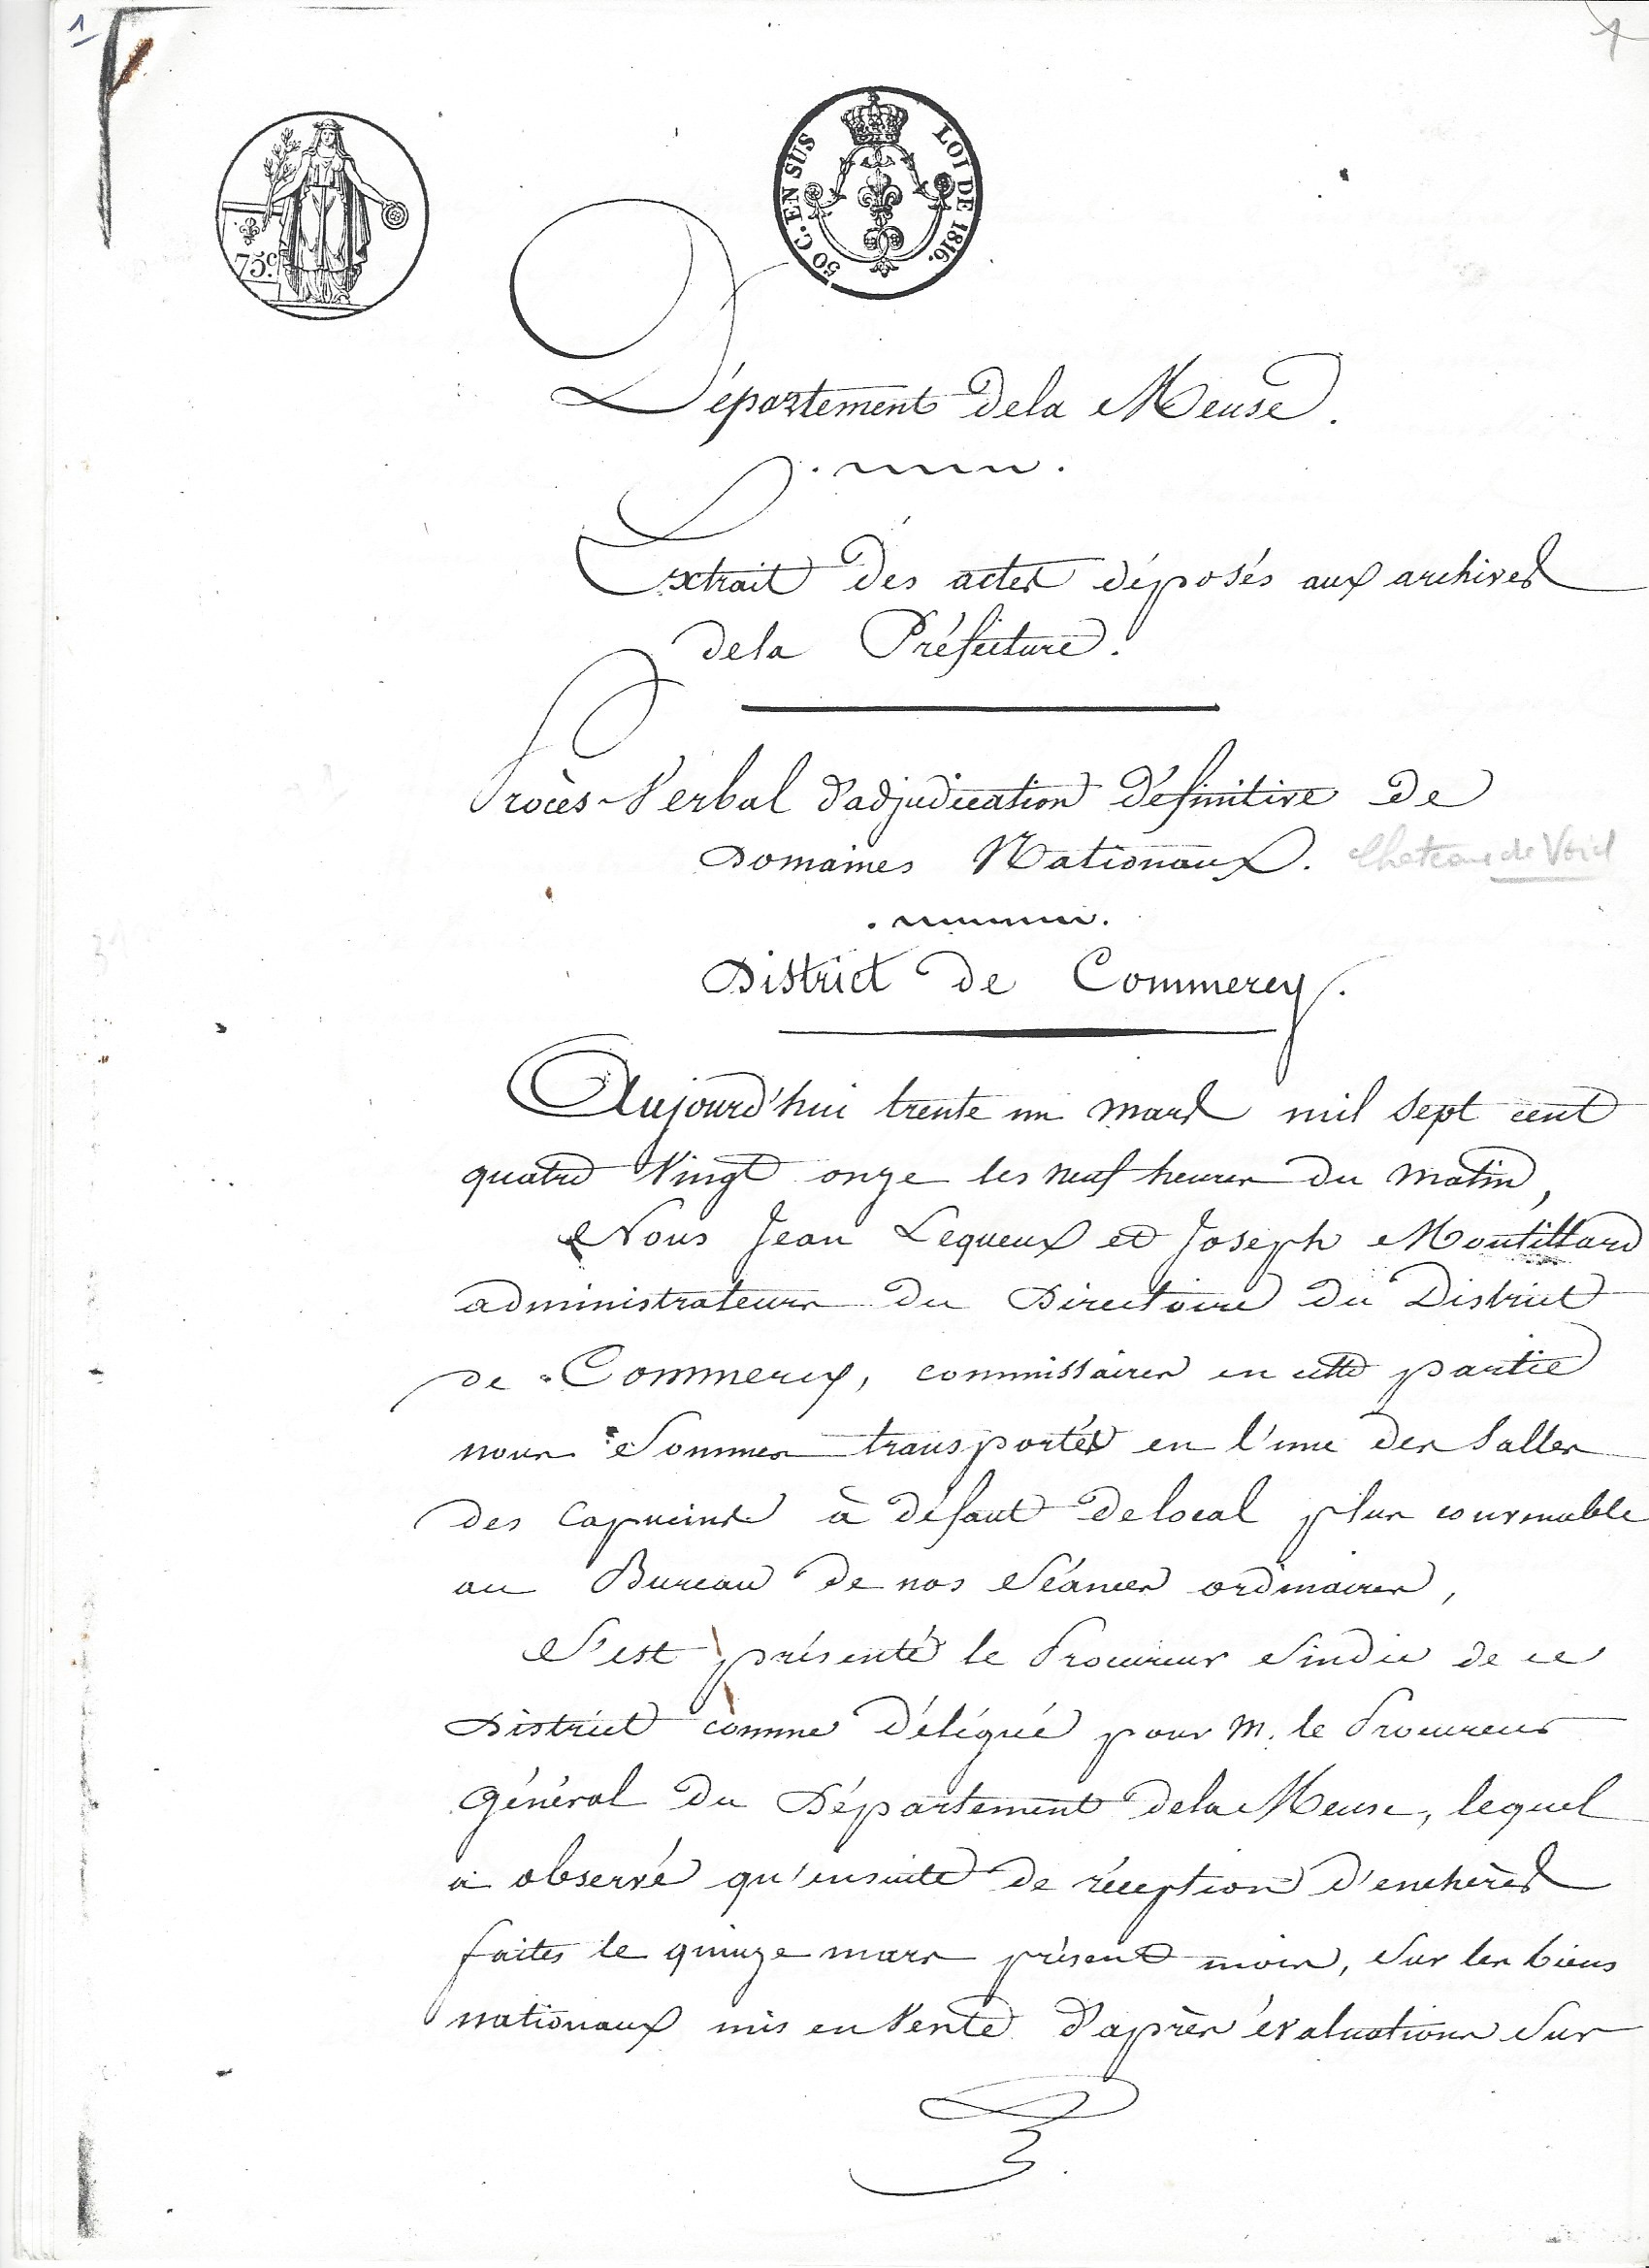 1
1
75c
50 C. EN SUS LOI DE 1816.
Département dela Meuse.
Extrait des actes déposés aux archives
dela Préfecture.
Procès-Verbal d'adjudication définitive de
Domaines Nationaux. Chateau de Void
District de Commercy.
Aujourd'hui trente un mars mil sept cent
quatre Vingt onze les neuf heures du matin,
Nous Jean Lequeux et Joseph Moutillard
administrateurs du Directoire du District
de Commercy, commissaires en cette partie
nous Sommes transportés en l'une des Salles
des Capucins à défaut delocal plus convenable
au Bureau de nos Séances ordinaires,
S'est présenté le Procureur Sindic de ce
District comme Délégué pour M. le Procureur
Général du Département dela Meuse, lequel
a observé qu'ensuite de réception d'enchères
faites le quinze mars présent mois, Sur les biens
nationaux mis en Vente d'après évaluations Sur